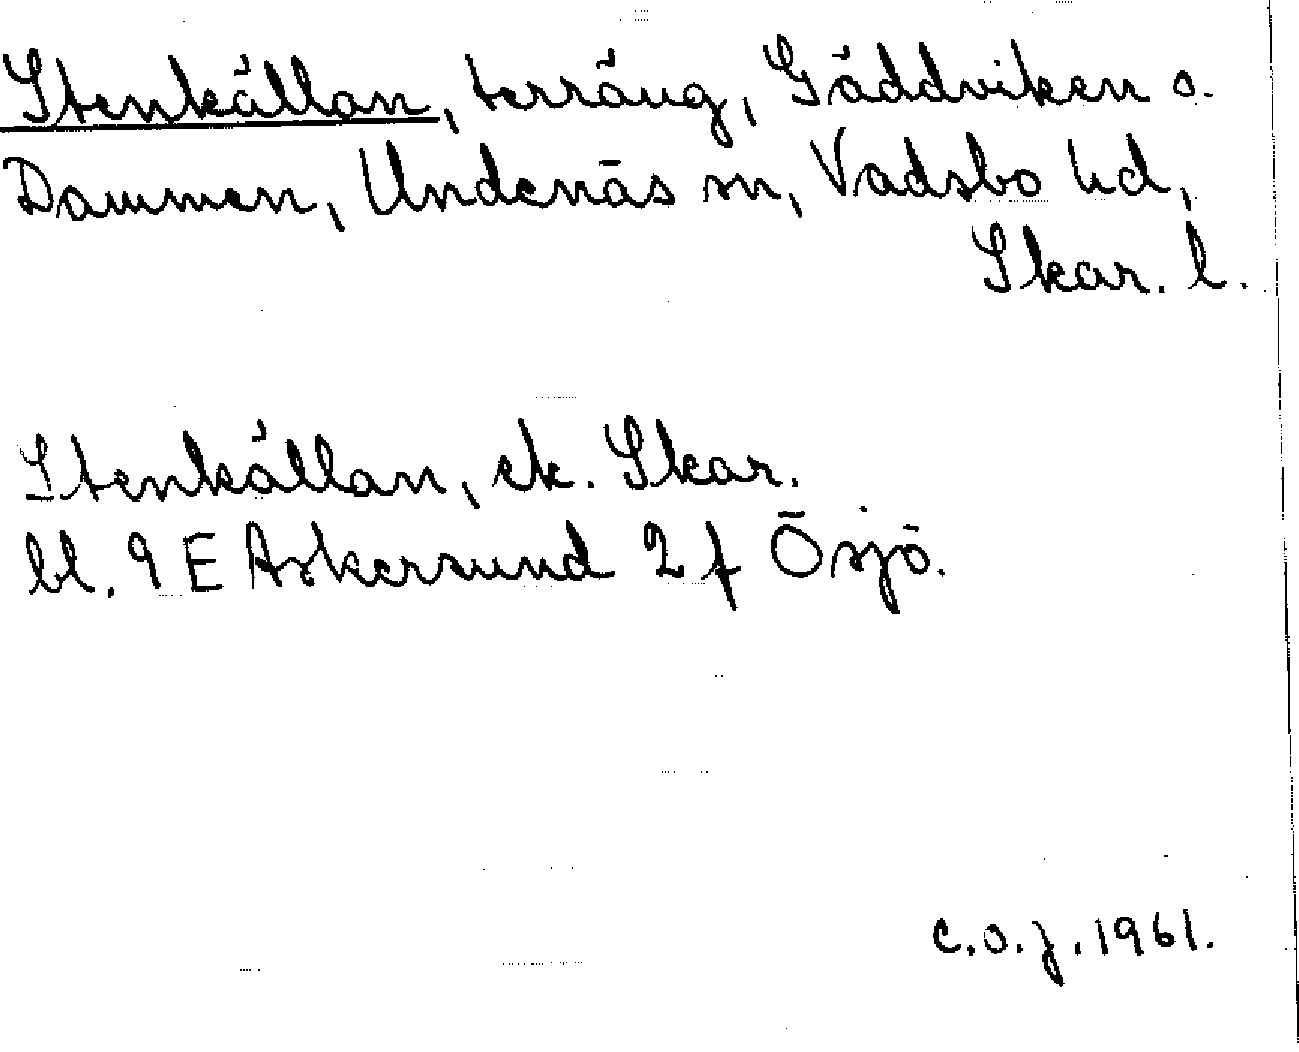 Stenkällan, terräng, Gäddviken o.
Dammen, Undenäs sn, Vadsbo hd,
Skar. l.
Stenkällan, ek. Skar.
bl. 9 E Askersund 2 f Ösjö.
C.O.J. 1961.